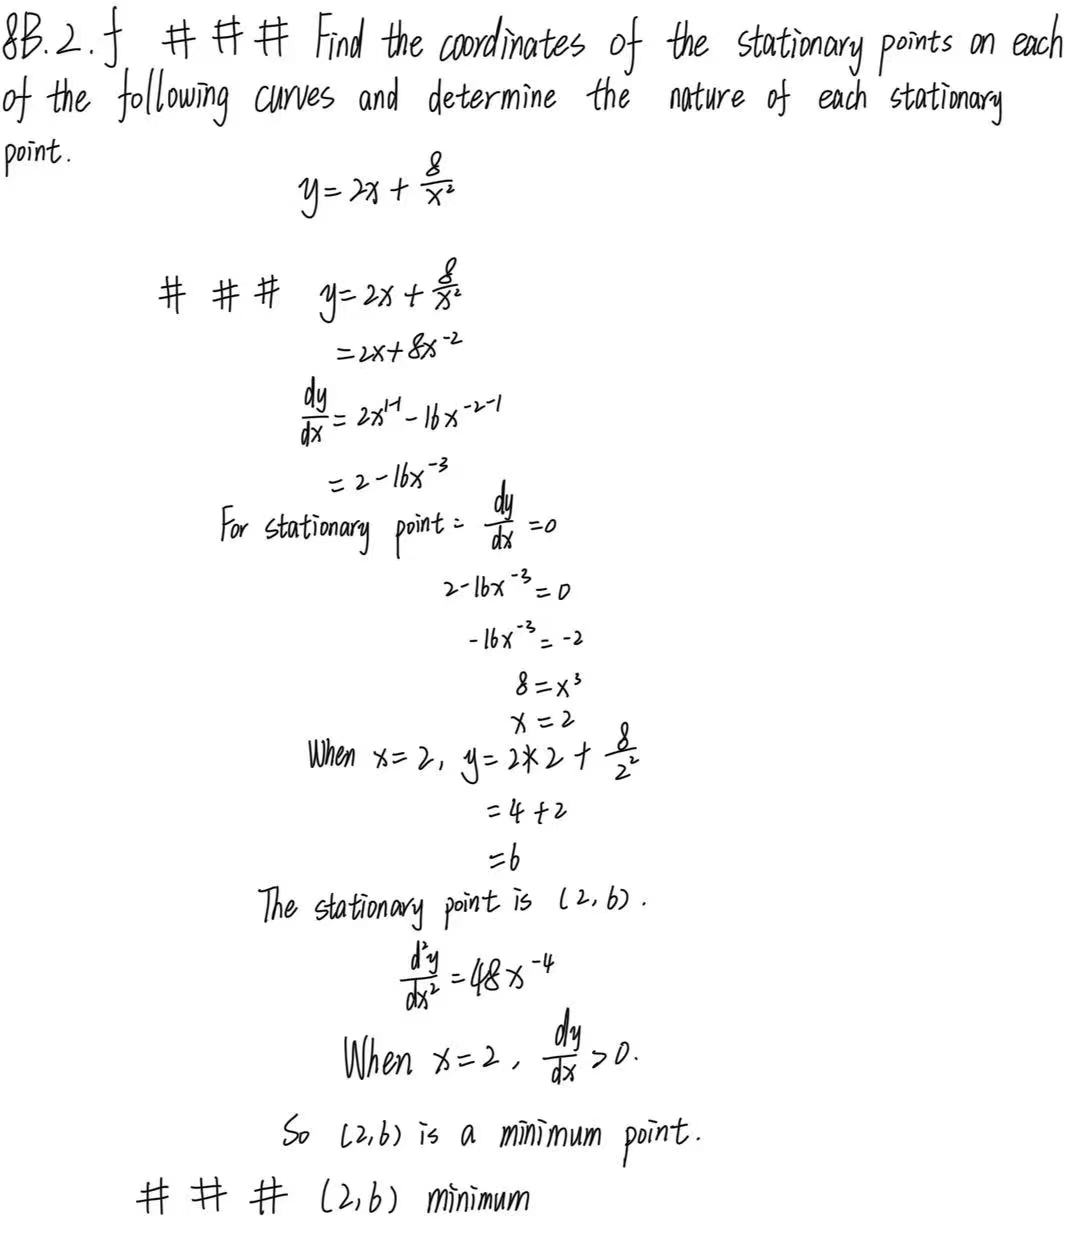 8B.2.f # # # Find the coordinates of the stationary points on each
of the following curves and determine the nature of each stationary
point.
y = 2x + 8/x²
# # # y = 2x + 8/x²
= 2x + 8x⁻²
dy/dx = 2x¹⁻¹ - 16x⁻²⁻¹
= 2 - 16x⁻³
For stationary point = dy/dx = 0
2 - 16x⁻³ = 0
-16x⁻³ = -2
8 = x³
x = 2
When x = 2, y = 2*2 + 8/2²
= 4 + 2
= 6
The stationary point is (2, 6).
d²y/dx² = 48x⁻⁴
When x = 2, dy/dx > 0.
So (2,6) is a minimum point.
# # # (2,6) minimum